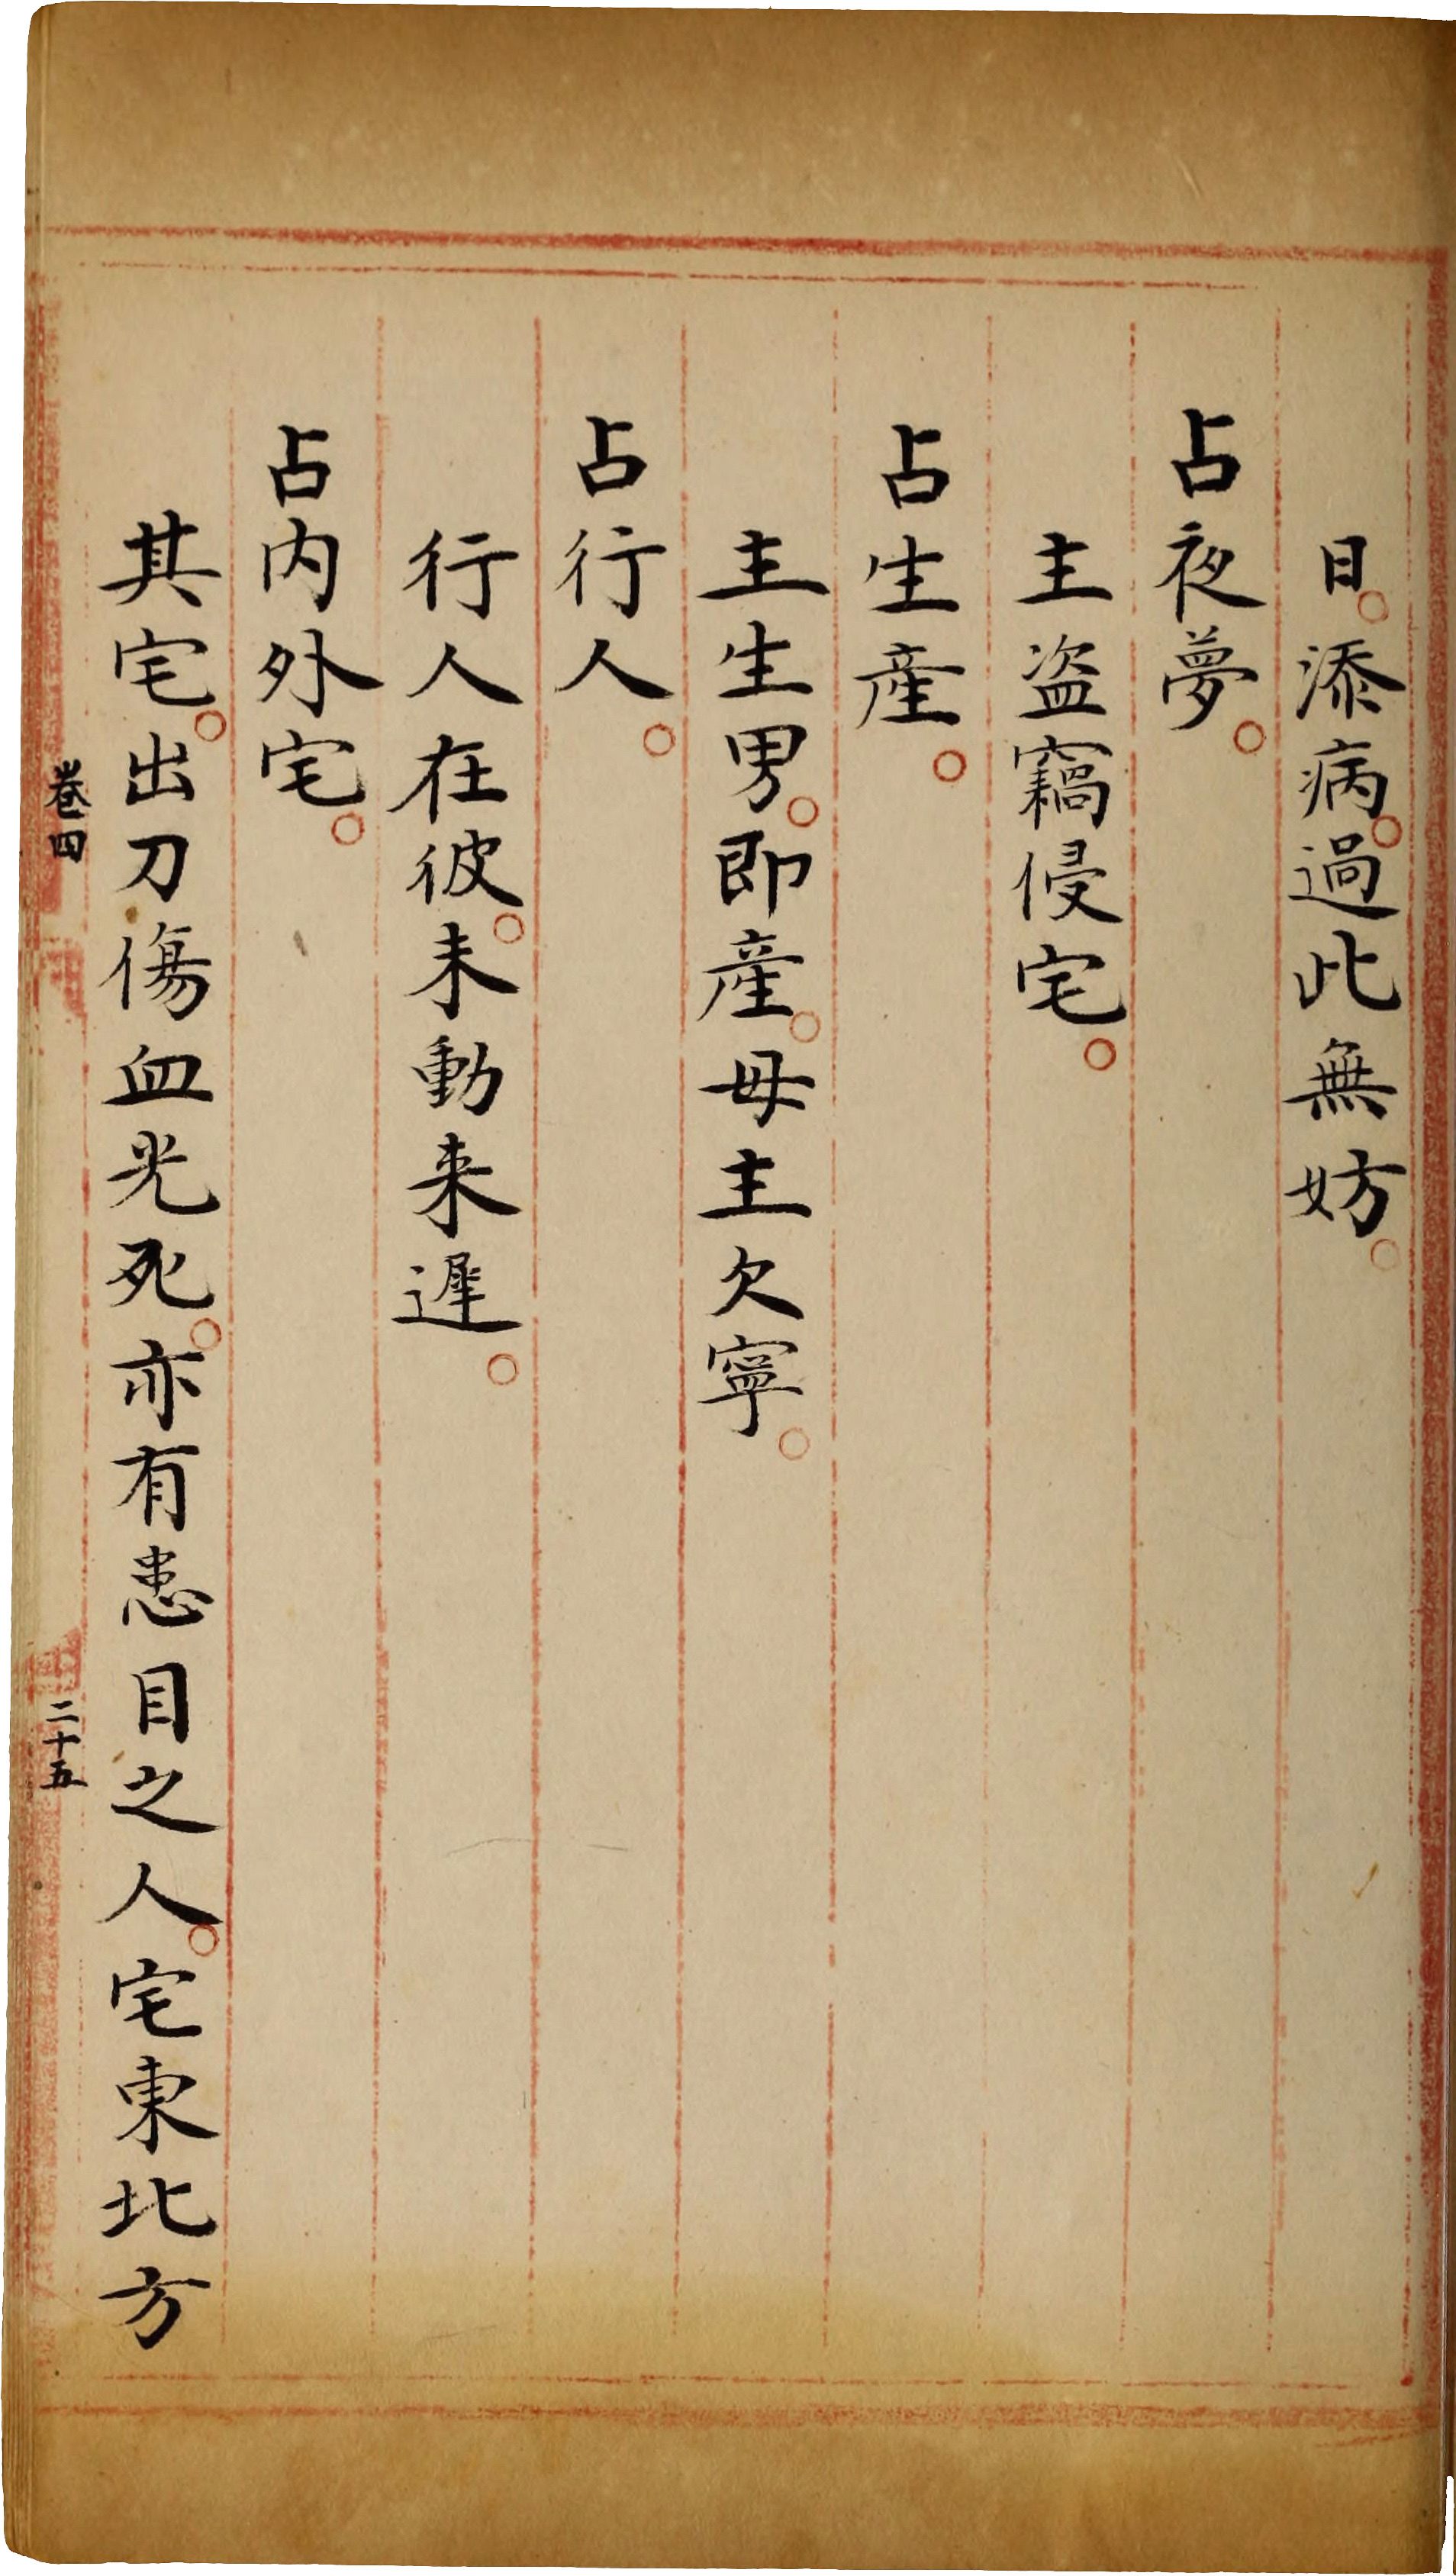 日。添病。過此無妨。
占夜夢。
主盜竊侵宅。
占生產。
主生男。即產。母主欠寧。
占行人。
行人在彼。未動来遲。
占内外宅。
其宅。出刀傷血光死。亦有患目之人。宅東北方
卷四
二十五